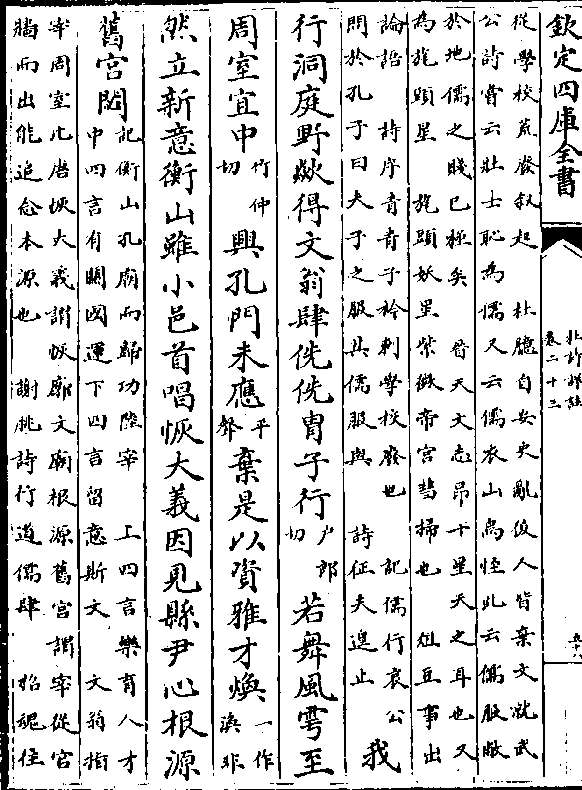 欽定四庫全書
杜詩詳註
卷二十三
從學校荒廢叙起　杜臆自安史亂後人皆棄文就武
公詩嘗云壯士恥為儒又云儒衣山鳥怪此云儒服敝
於地儒之賤已極矣　晉天文志昴十星天之耳也又
為旄頭星　旄頭妖星紫微帝宮彗掃也　俎豆事出
論語　詩序青青子衿刺學校廢也　記儒行哀公
問於孔子曰夫子之服其儒服與　詩征夫遑止
我
行洞庭野歘得文翁肆侁侁胄子行戶郎切若舞風雩至
周室宜中竹仲切興孔門未應平聲棄是以資雅才煥一作渙非
然立新意衡山雖小邑首唱恢大義因見縣尹心根源
舊宮閟
記衡山孔廟而歸功陸宰　上四言樂育人才
中四言有關國運下四言留意斯文　文翁指
宰周室比唐恢大義謂恢廓文廟根源舊宮謂宰從宮
牆而出能追念本源也　謝朓詩行道儒肆　招魂往